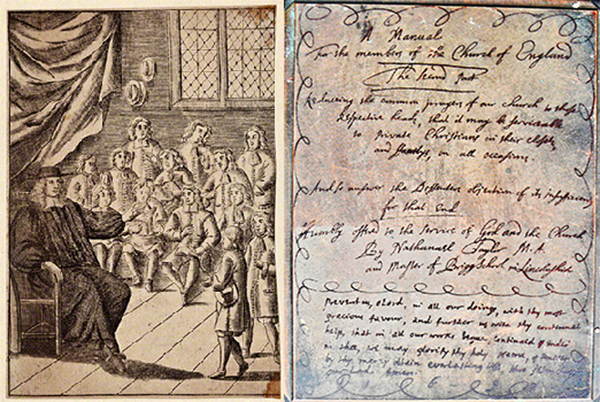 A Manual
For the members of the Church of England
The Second Part
Reducing the common prayers of our church to those
Respective heads, that it may be serviceable
to private Christians in their closets
and on all occasions.
And so answer the Defenders objection of its
for that End
Humbly offred to the service of God and the Church
By Nathanael Taylor M.A.
and Master of Brigg School in Lincolnshire
Prevent us, O Lord, in all our doings, with thy most
gracious favour, and further us with thy continual
help, that in all our works begun, continued &
in thee, we may glorify thy holy name, &
by thy mercy obtain everlasting life, thro
our Lord. Amen.